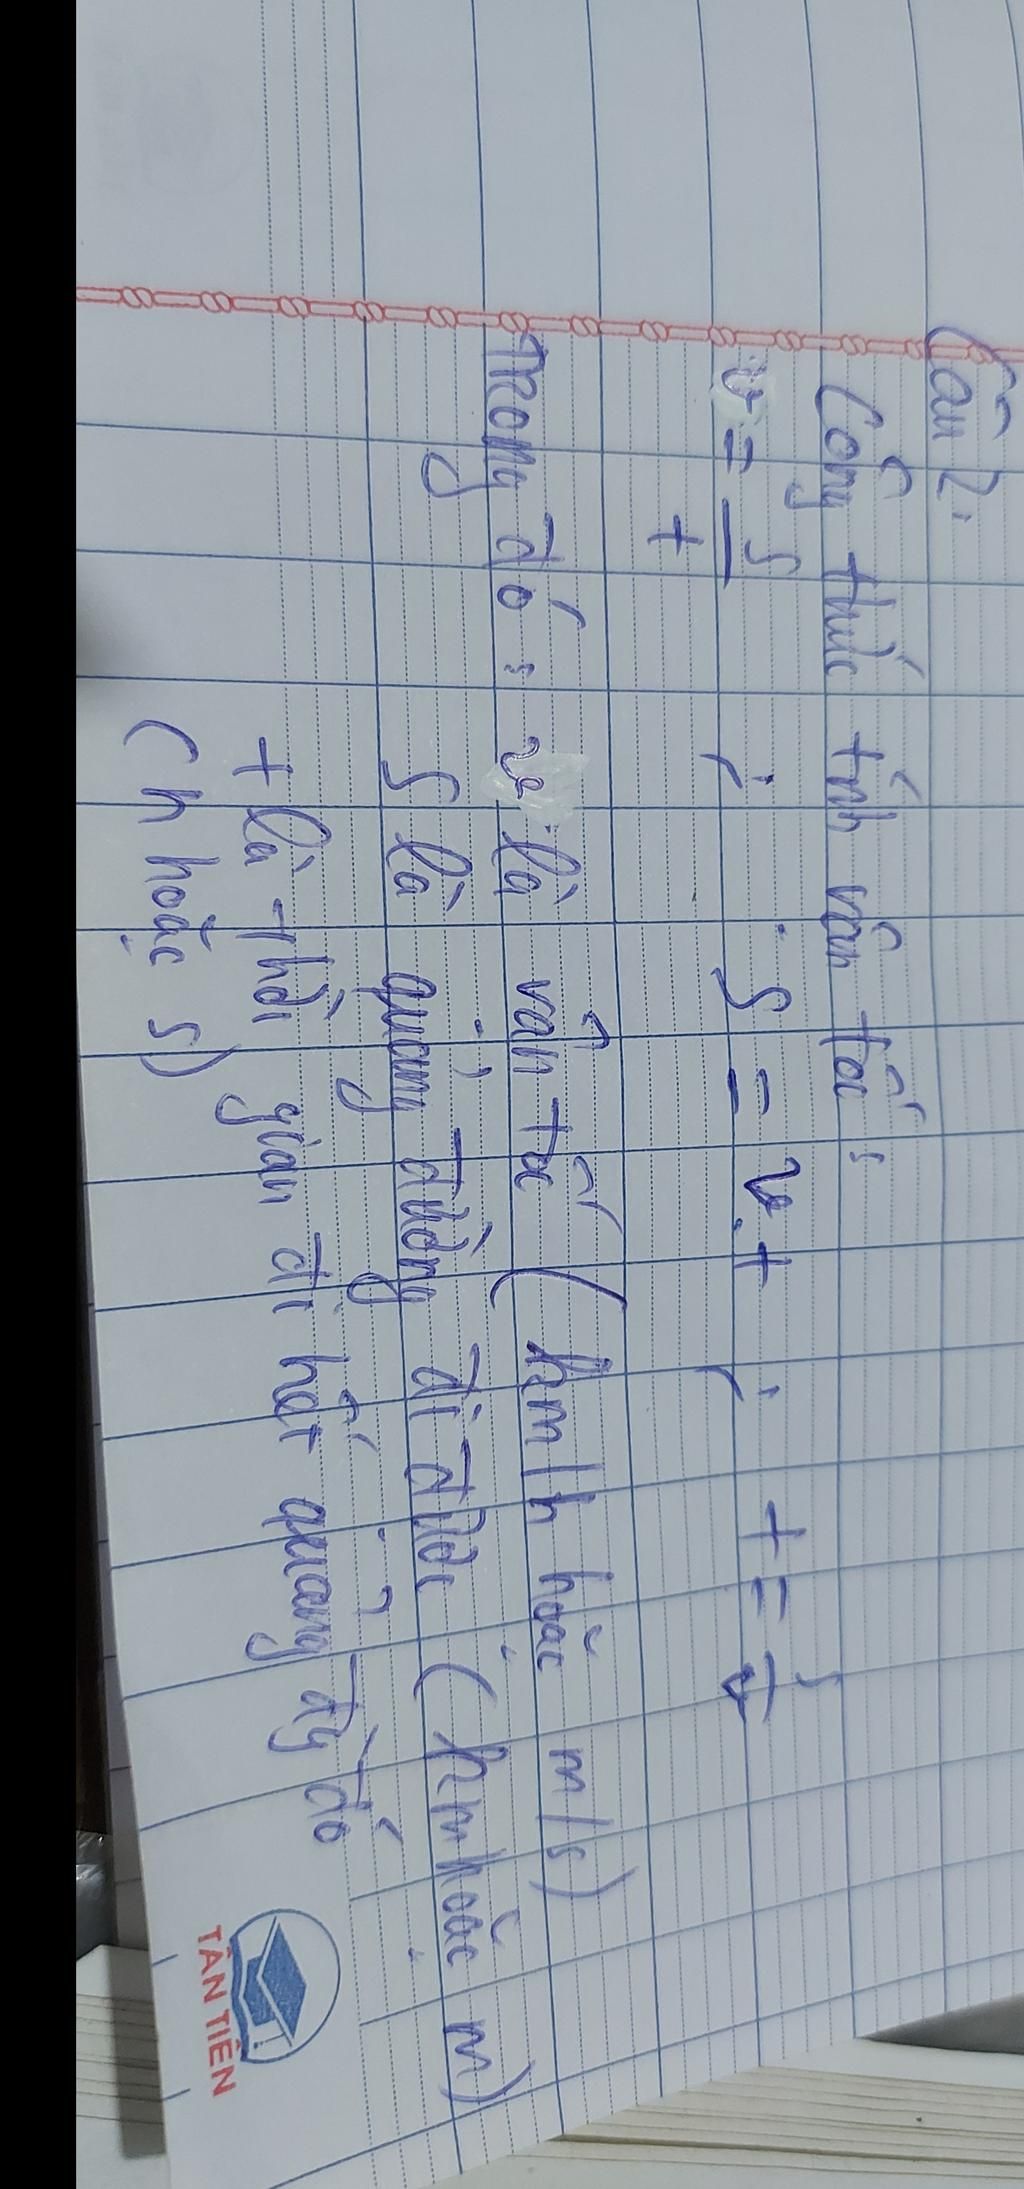 Câu 2.
Công thức tính vận tốc :
v = s/t ; S = v.t ; t = s/v
Trong đó : v là vận tốc (km/h hoặc m/s)
S là quảng đường đi được (km hoặc m)
t là thời gian đi hết quảng đg đó
(h hoặc s)
TÂN TIẾN